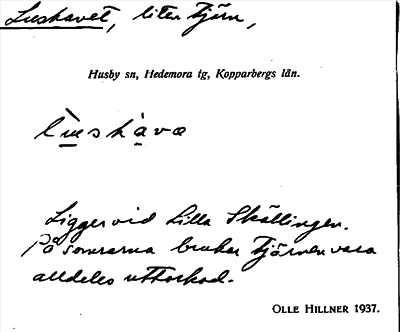 Lushavet, liten tjärn,
Husby sn, Hedemora tg, Kopparbergs län.
lùshàvæ
Ligger vid Lilla Skällingen.
På somrarna brukar tjärnen vara
alldeles uttorkad.
OLLE HILLNER 1937.